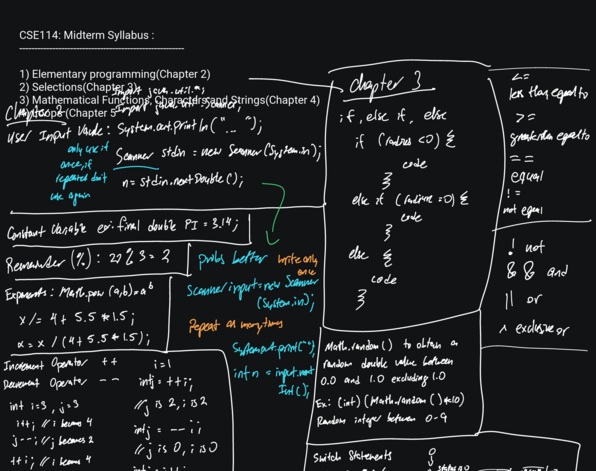 CSE114: Midterm Syllabus :
1) Elementary programming(Chapter 2)
2) Selections(Chapter 3)
3) Mathematical Functions, Characters, and Strings(Chapter 4)
Scope(Chapter 5
import java.util.*;
import java.util.Scanner;
Chapter 2
User Input Value: System.out.println("...");
only use if
once, if
repeated don't
use again
Scanner stdin = new Scanner(System.in);
n = stdin.nextDouble();
Constant Variable ex: final double PI = 3.14;
Remainder (%): 20 % 3 = 2
Exponents: Math.pow (a,b) = a^b
x /= 4 + 5.5 * 1.5;
x = x / (4 + 5.5 * 1.5);
Increment Operator ++
Decrement Operator --
int i=3, j=3
i++; // i becomes 4
j--; // j becomes 2
++i; // i becomes 4
i=1
int j = ++i;
// j is 2, i is 2
int j = --i;
// j is 0, i is 0
probs better
write only
once
Scanner input = new Scanner
(System.in);
Repeat as many times
System.out.print("");
int n = input.next
Int();
Chapter 3
if, else if, else
if (radius <0) {
code
}
else if (radius =0) {
code
}
else {
code
}
Math.random() to obtain a
random double value between
0.0 and 1.0 excluding 1.0
Ex: (int)(Math.random()*10)
Random integer between 0-9
Switch Statements
<=
less than equal to
>=
greater than equal to
==
equal
!=
not equal
! not
&& and
|| or
^ exclusive or